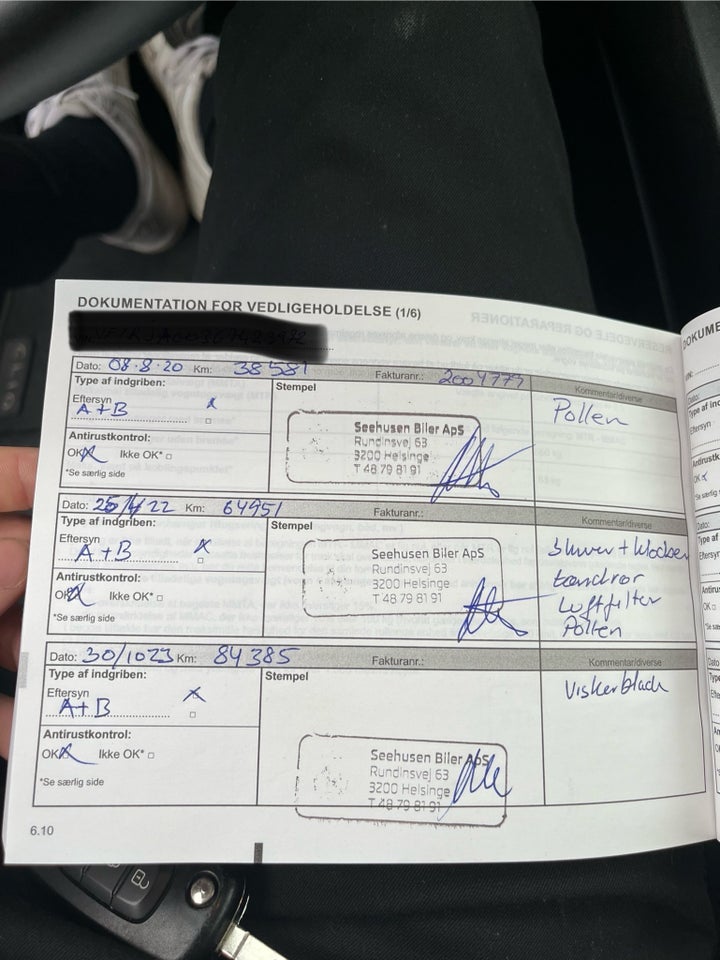 DOKUMENTATION FOR VEDLIGEHOLDELSE (1/6)
Dato: 08-8-20 Km: 38581 Fakturanr.: 2004777
Type af indgriben: Stempel Kommentar/diverse
Eftersyn
A+B x
Antirustkontrol:
OK x Ikke OK*
*Se særlig side
Seehusen Biler ApS
Rundinsvej 63
3200 Helsinge
T 48 79 81 91
Pollen
Dato: 25/4/22 Km: 64951 Fakturanr.:
Type af indgriben: Stempel Kommentar/diverse
Eftersyn
A+B x
Antirustkontrol:
OK x Ikke OK*
*Se særlig side
Seehusen Biler ApS
Rundinsvej 63
3200 Helsinge
T 48 79 81 91
Skiver + klodser
tændrør
Luftfilter
Pollen
Dato: 30/1023 Km: 84385 Fakturanr.:
Type af indgriben: Stempel Kommentar/diverse
Eftersyn
A+B x
Antirustkontrol:
OK x Ikke OK*
*Se særlig side
Seehusen Biler ApS
Rundinsvej 63
3200 Helsinge
T 48 79 81 91
Viskerblade
6.10
RESERVEDELE OG REPARATIONER
CLIO